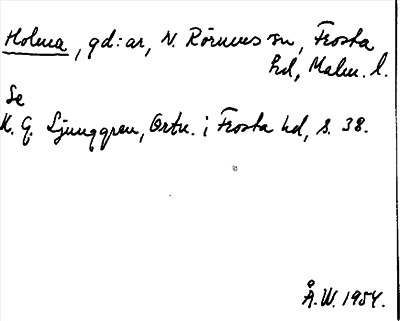 Holma, gd:ar, N. Rörums sn, Frosta
hd, Malm. l.
Se
K. G. Ljunggren, Ortn. i Frosta hd, s. 38.
Å.W. 1954.